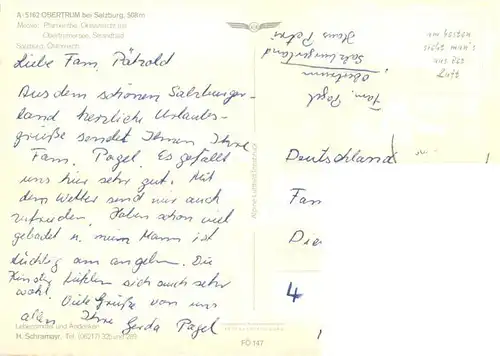 A-5162 OBERTRUM bei Salzburg, 508 m
Motive: Pfarrkirche, Gesamtansicht
Obertrumersee, Strandbad
Salzburg, Österreich
Liebe Fam. Pätzold
Aus dem schönen Salzburger-
land herzliche Urlaubs-
grüße sendet Ihnen Ihre
Fam. Pagel. Es gefällt
uns hier sehr gut. Mit
dem Wetter sind wir auch
zufrieden. Haben schon viel
gebadet u. mein Mann ist
tüchtig am angeln. Die
Kinder fühlen sich auch sehr
wohl. Viele Grüße von uns
allen Ihre Gerda Pagel
Lebensmittel und Andenken
H. Schramayr, Tel. (06217) 325 und 289
FÖ 147
am besten
sieht man's
aus der
Luft
Fam. Pagel
Obertrum
Salzburgerland
Haus Peter
Deutschland
Fam
Die
4